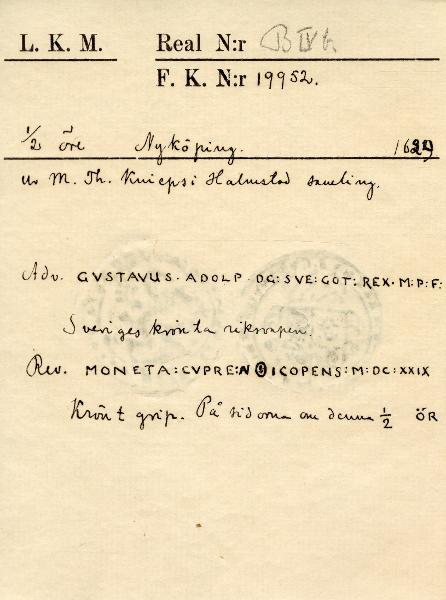 L. K. M. Real N:r B IV b
F. K. N:r 19952.
1/2 öre Nyköping. 1629
ur M. Th. Kniepsi Halmstad samling.
Adv. GVSTAVUS · ADOLP · DG: SVE: GOT: REX · M: P: F:
Sveriges krönta riksvapen.
Rev. MONETA: CVPRE: NICOPENS: M: DC: XXIX
Krönt grip. På sidorna om denna 1/2 ÖR